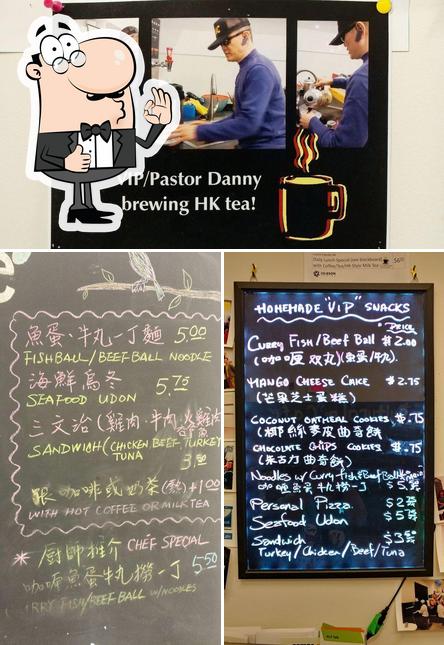 VIP/Pastor Danny
brewing HK tea!
魚蛋、牛丸一丁麵 5.00
FISHBALL/BEEFBALL NOODLE
海鮮烏冬 5.75
SEAFOOD UDON
三文治(雞肉、牛肉、火雞肉
SANDWICH (CHICKEN BEEF TURKEY
TUNA
跟咖啡或奶茶(熱)+1.00
WITH HOT COFFEE OR MILK TEA
* 廚師推介 CHEF SPECIAL
咖喱魚蛋牛丸撈一丁 5.50
CURRY FISH/BEEF BALL W/NOODLES
Daily Lunch Special (see blackboard)
with Coffee/Tea/HK-Style Milk Tea
HOMEMADE "VIP" SNACKS
PRICE
CURRY FISH/BEEF BALL $2.00
(咖喱双丸)(魚蛋/牛丸)
MANGO CHEESE CAKE $2.75
(芒果芝士蛋糕)
COCONUT OATMEAL COOKIES $.75
(椰絲麥皮曲奇餅)
CHOCOLATE CHIPS COOKIES $.75
(朱古力曲奇餅)
Noodles w/ Curry fish & Beef Ball
咖喱魚蛋牛丸撈一丁
Personal Pizza
Seafood Udon
Sandwich
Turkey/Chicken/Beef/Tuna